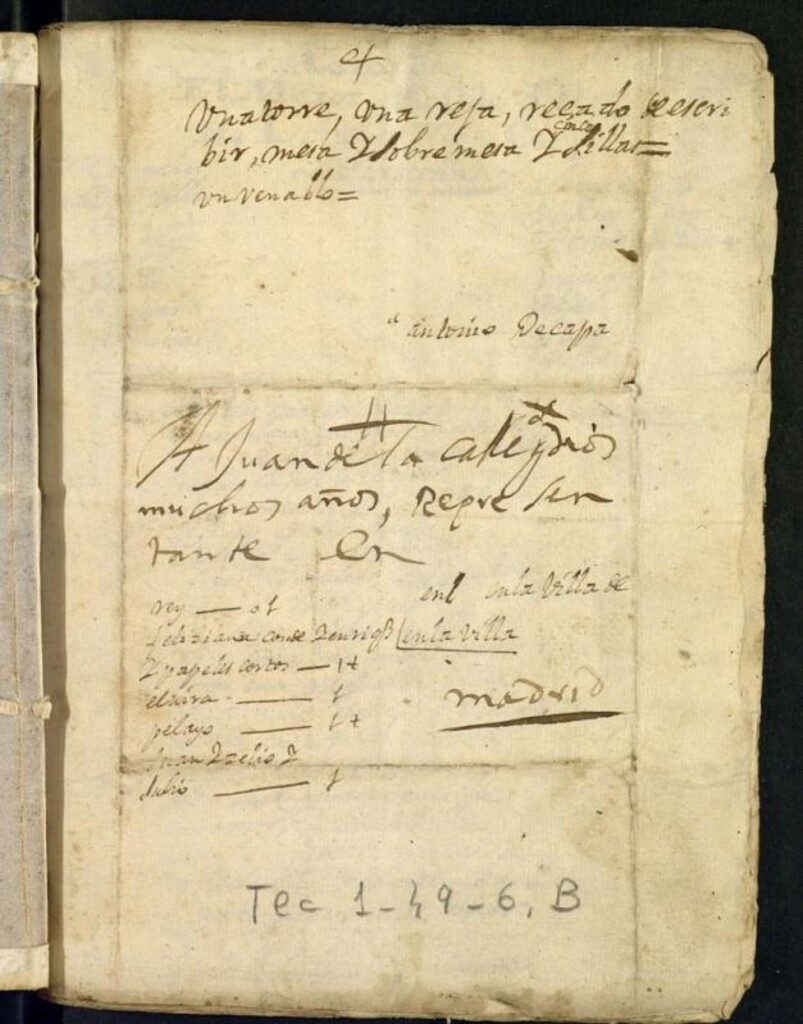 vna torre, vna reja, recado de escri
bir, mesa Y sobre mesa Y cinco sillas =
vn venado =
a antonio De capa
A Juan de la calle g dios
muchos años, Represen
tante en
enl en la Villa de
rey — 01
feliziana conde Y enriq
en la villa
Y papeles cortos — 1+
elvira — 1
madrid
pelayo — 1+
Juan Y celio Y
Julio — 1
Tea 1-49-6, B